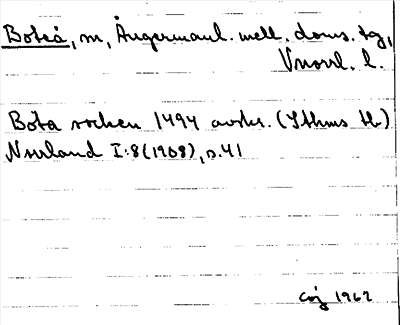 Boteå, m, Ångermanl. mell. doms. tg,
Vnorrl. l.
Bota socken 1494 avskr. (Sthms tb)
Norrland I:8 (1908), s. 41
1962